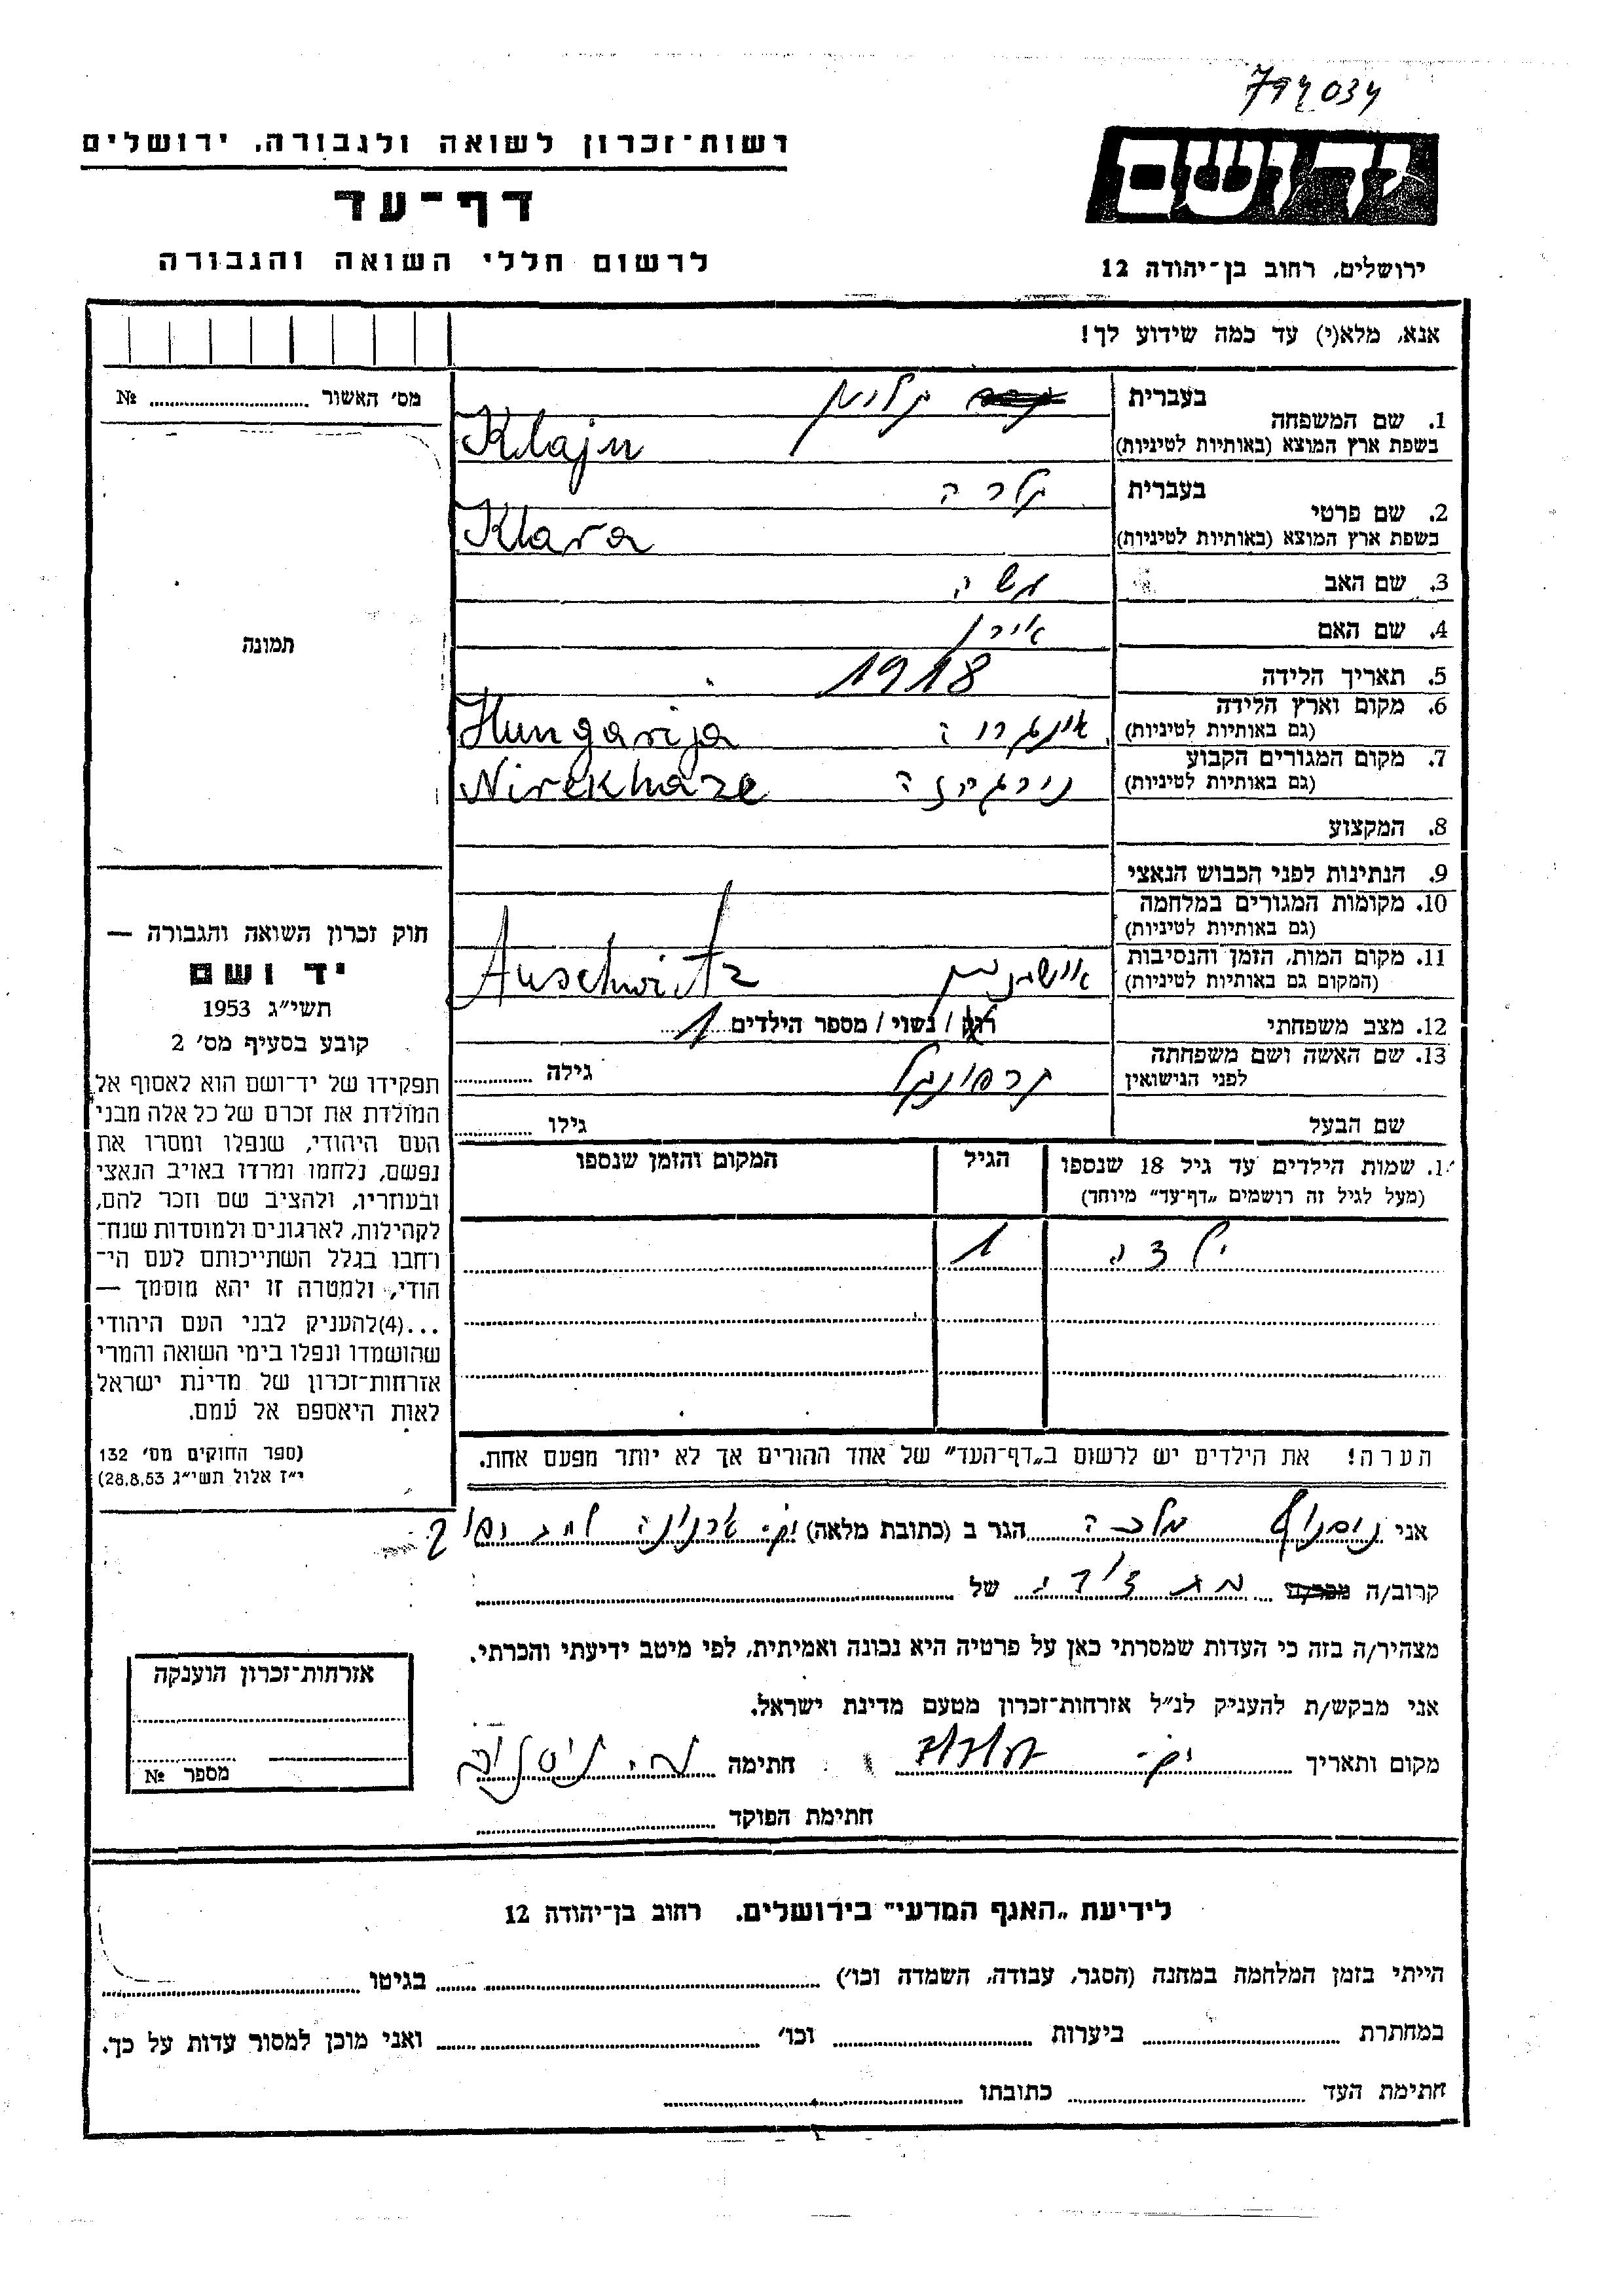 רשות־זכרון לשואה ולגבורה, ירושלים
דף־עד
לרשום חללי השואה והגבורה
יד ושם
ירושלים, רחוב בן־יהודה 12
אנא, מלא(י) עד כמה שידוע לך!
מס׳ האשור № 
1. שם המשפחה
בעברית קליין
בשפת ארץ המוצא (באותיות לטיניות) Klajn
2. שם פרטי
בעברית קלרה
בשפת ארץ המוצא (באותיות לטיניות) Klara
3. שם האב משה
4. שם האם אירן
5. תאריך הלידה 1918
6. מקום וארץ הלידה
(גם באותיות לטיניות) Hungarija
7. מקום המגורים הקבוע
(גם באותיות לטיניות) Nirekhaze
8. המקצוע
9. הנתינות לפני הכבוש הנאצי
10. מקומות המגורים במלחמה
(גם באותיות לטיניות)
11. מקום המות, הזמן והנסיבות
(המקום גם באותיות לטיניות) Auschwitz
12. מצב משפחתי רווק / נשוי / מספר הילדים 1
13. שם האשה ושם משפחתה
לפני הנישואין גילה
שם הבעל גילו
שמות הילדים עד גיל 18 שנספו הגיל המקום והזמן שנספו
(מעל לגיל זה רושמים „דף־עד” מיוחד)
ילדה 1
הערה! את הילדים יש לרשום ב„דף־העד” של אחד ההורים אך לא יותר מפעם אחת.
תמונה
חוק זכרון השואה והגבורה —
יד ושם
תשי״ג 1953
קובע בסעיף מס׳ 2
תפקידו של יד־ושם הוא לאסוף אל
המולדת את זכרם של כל אלה מבני
העם היהודי, שנפלו ומסרו את
נפשם, נלחמו ומרדו באויב הנאצי
ובעוזריו, ולהציב שם וזכר להם,
לקהילות, לארגונים ולמוסדות שנח־
רחבו בגלל השתייכותם לעם הי־
הודי, ולמטרה זו יהא מוסמך —
...(4)להעניק לבני העם היהודי
שהושמדו ונפלו בימי השואה והמרי
אזרחות־זכרון של מדינת ישראל
לאות היאספם אל עמם.
(ספר החוקים מס׳ 132
י״ז אלול תשי״ג 28.8.53)
אני מלכה הגר ב (כתובת מלאה)
קרוב/ה של
מצהיר/ה בזה כי העדות שמסרתי כאן על פרטיה היא נכונה ואמיתית, לפי מיטב ידיעתי והכרתי.
אני מבקש/ת להעניק לנ״ל אזרחות־זכרון מטעם מדינת ישראל.
מקום ותאריך חתימה
חתימת הפוקד
אזרחות־זכרון הוענקה
מספר №
לידיעת „האגף המדעי” בירושלים. רחוב בן־יהודה 12
הייתי בזמן המלחמה במחנה (הסגר, עבודה, השמדה וכו׳) בגיטו
במחתרת ביערות וכו׳ ואני מוכן למסור עדות על כך.
חתימת העד כתובתו